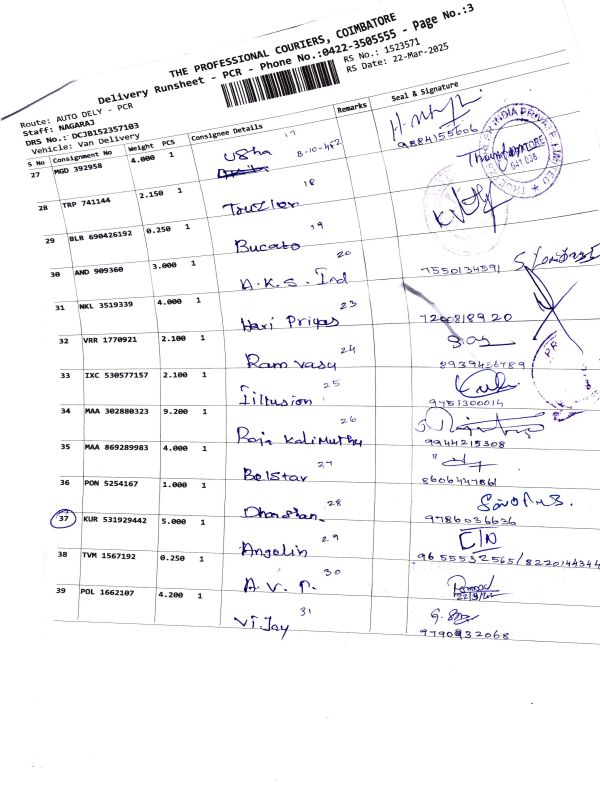 THE PROFESSIONAL COURIERS, COIMBATORE
Delivery Runsheet - PCR - Phone No.:0422-3505555 - Page No.:3
Route: AUTO DELY - PCR
Staff: NAGARAJ
DRS No.: DCJB152357103
Vehicle: Van Delivery
RS No.: 1523571
RS Date: 22-Mar-2025
S No Consignment No Weight PCS Consignee Details Remarks Seal & Signature
27 MGD 392958 4.000 1 Usha 17 8-10-482 9884155606
28 TRP 741144 2.150 1 18
29 BLR 690426192 0.250 1 Bucato 19
30 AND 909360 3.000 1 A.K.S. Ind 20 7550134591
31 NKL 3519339 4.000 1 Hari Priyas 23 7200818920
32 VRR 1770921 2.100 1 Ram Vasu 24 8939456789
33 IXC 530577157 2.100 1 25 9751300014
34 MAA 302880323 9.200 1 Raja Kalimuthu 26 9944215308
35 MAA 869289983 4.000 1 Belstar 27 8606447861
36 PON 5254167 1.000 1 28 9786036626
37 KUR 531929442 5.000 1 Angelin 29 C/N 9655532565/8220144344
38 TVM 1567192 0.250 1 A.V.P. 30
39 POL 1662107 4.200 1 Vijay 31 9790932068